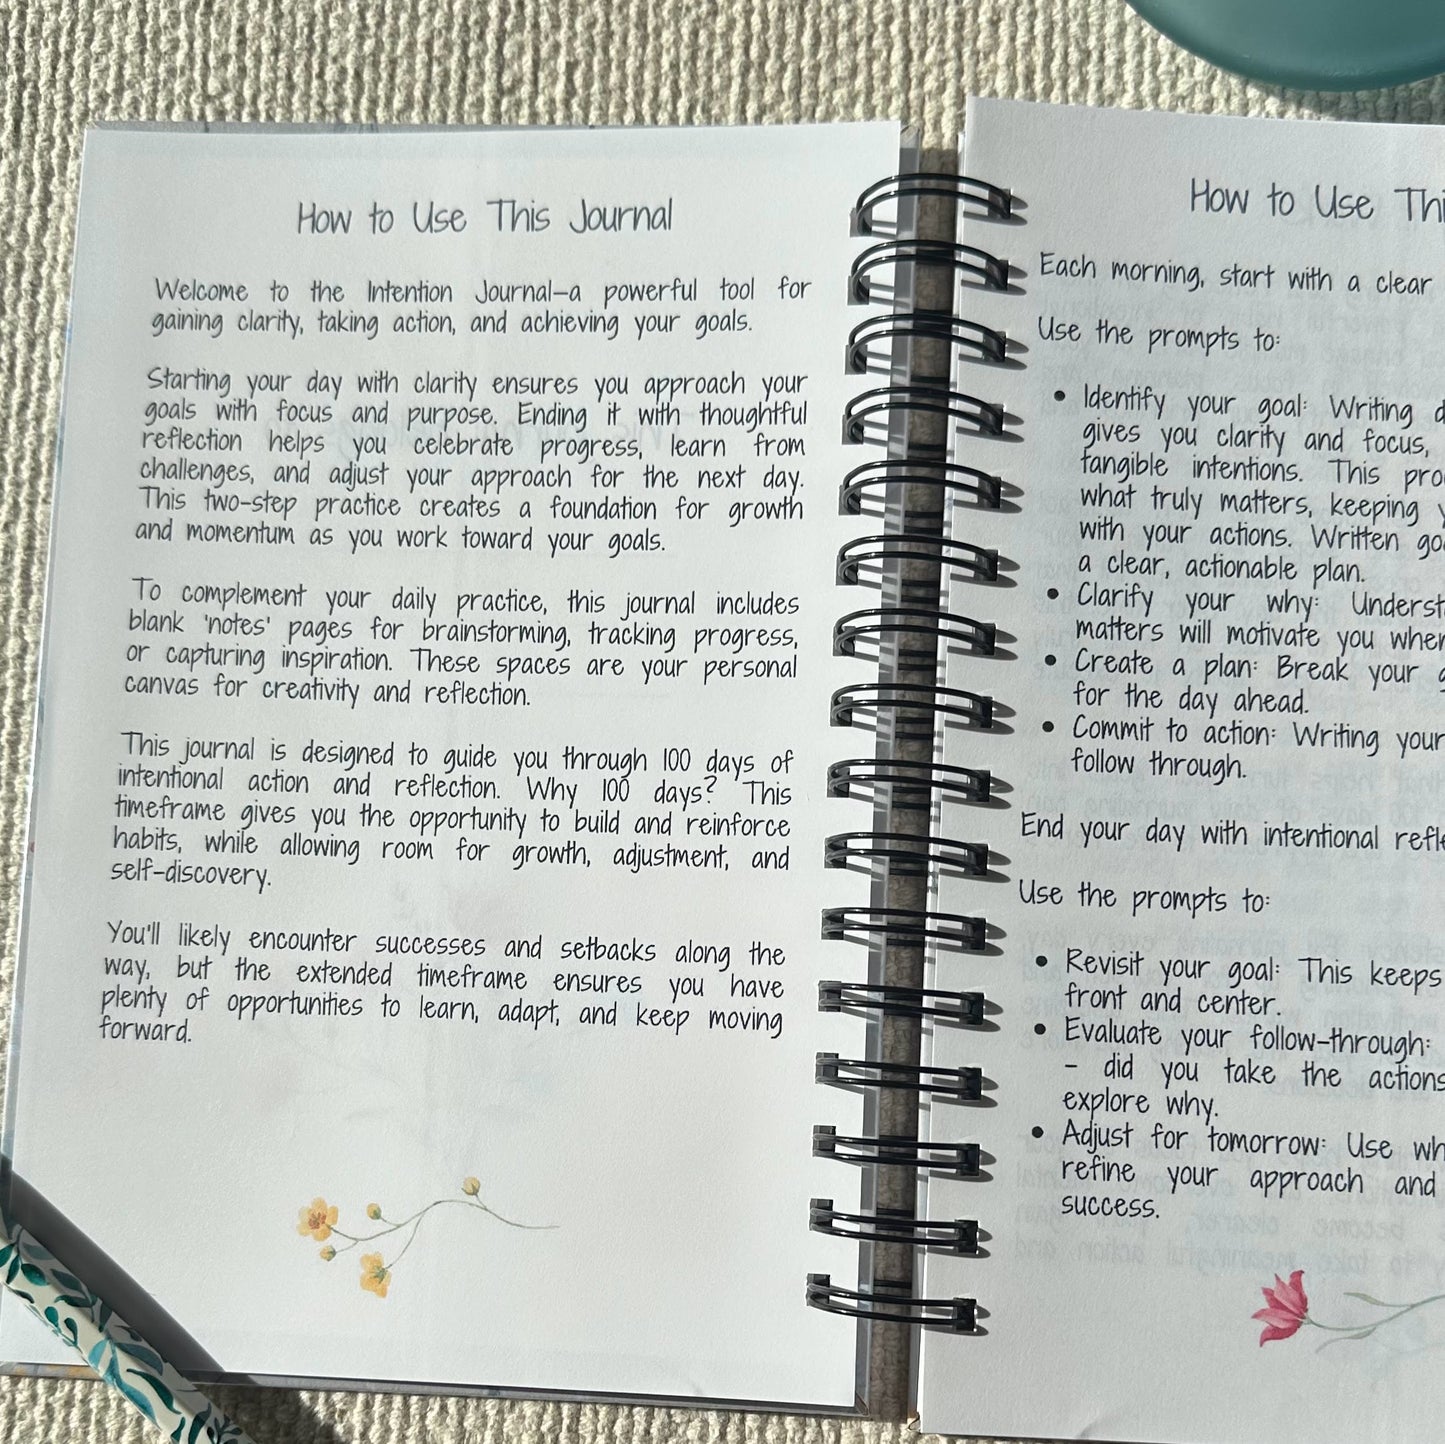 How to Use This Journal
Welcome to the Intention Journal–a powerful tool for
gaining clarity, taking action, and achieving your goals.
Starting your day with clarity ensures you approach your
goals with focus and purpose. Ending it with thoughtful
reflection helps you celebrate progress, learn from
challenges, and adjust your approach for the next day.
This two-step practice creates a foundation for growth
and momentum as you work toward your goals.
To complement your daily practice, this journal includes
blank 'notes' pages for brainstorming, tracking progress,
or capturing inspiration. These spaces are your personal
canvas for creativity and reflection.
This journal is designed to guide you through 100 days of
intentional action and reflection. Why 100 days? This
timeframe gives you the opportunity to build and reinforce
habits, while allowing room for growth, adjustment, and
self-discovery.
You'll likely encounter successes and setbacks along the
way, but the extended timeframe ensures you have
plenty of opportunities to learn, adapt, and keep moving
forward.
How to Use
Each morning, start with a clear
Use the prompts to:
• Identify your goal: Writing
gives you clarity and focus,
tangible intentions. This
what truly matters, keeping
with your actions. Written
a clear, actionable plan.
• Clarify your why:
matters will motivate you
• Create a plan: Break your
for the day ahead.
• Commit to action: Writing your
follow through.
End your day with intentional
Use the prompts to:
• Revisit your goal: This keeps
front and center.
• Evaluate your follow-through:
– did you take the actions
explore why.
• Adjust for tomorrow: Use
refine your approach and
success.